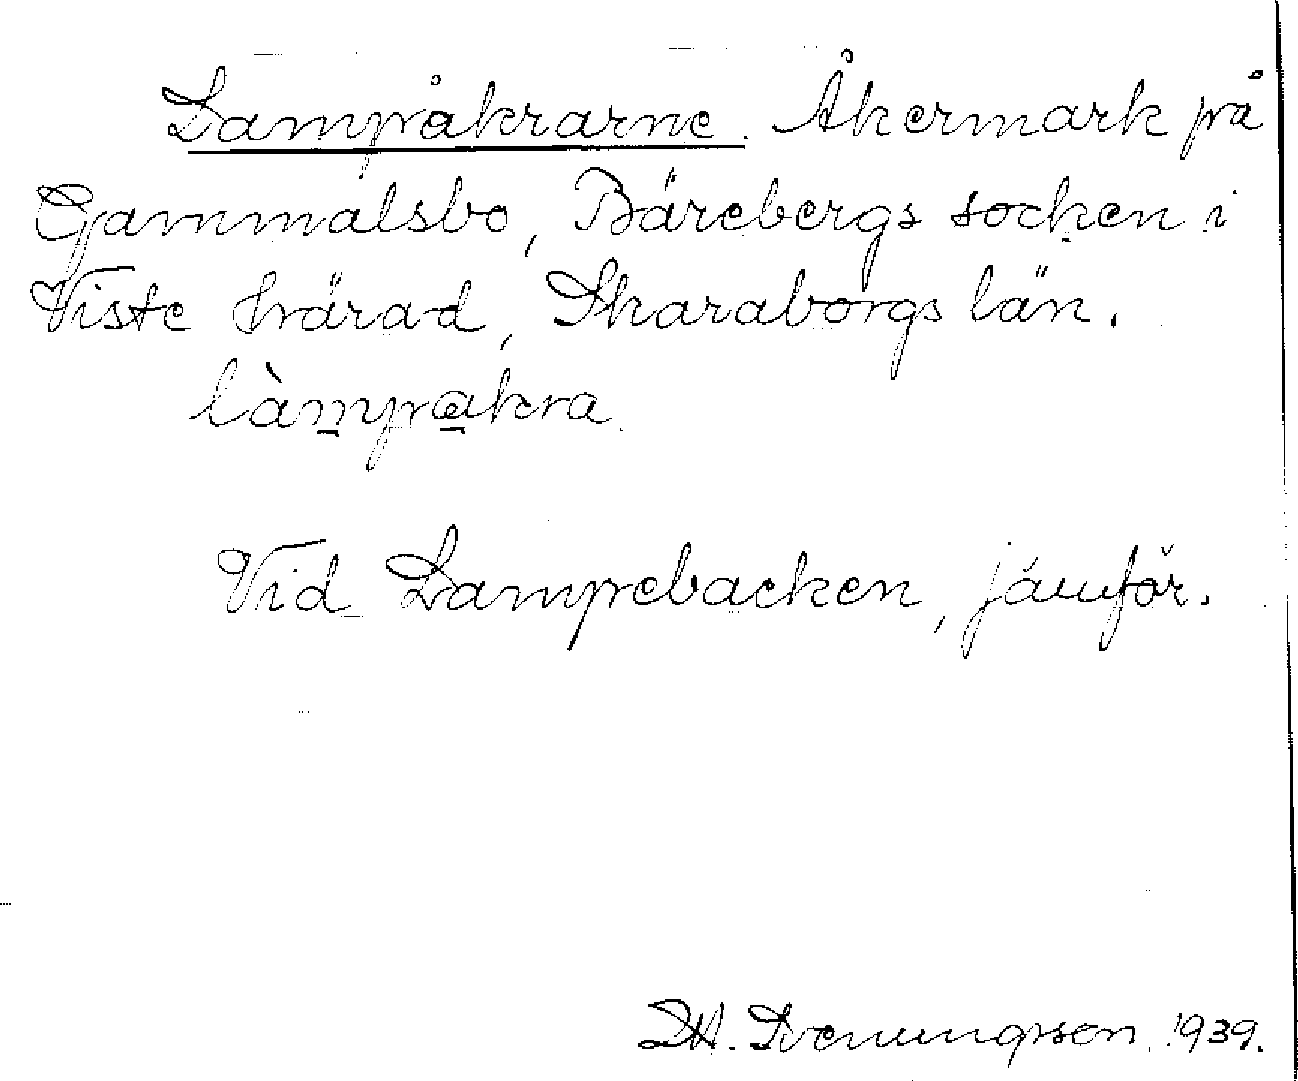 Lampåkrarne. Åkermark på
Gammalsbo, Bärebergs socken i
Viste härad, Skaraborgs län.
làm̲pa̲kra.
Vid Lampebacken, jämför.
D.A. Svenungsson. 1939.